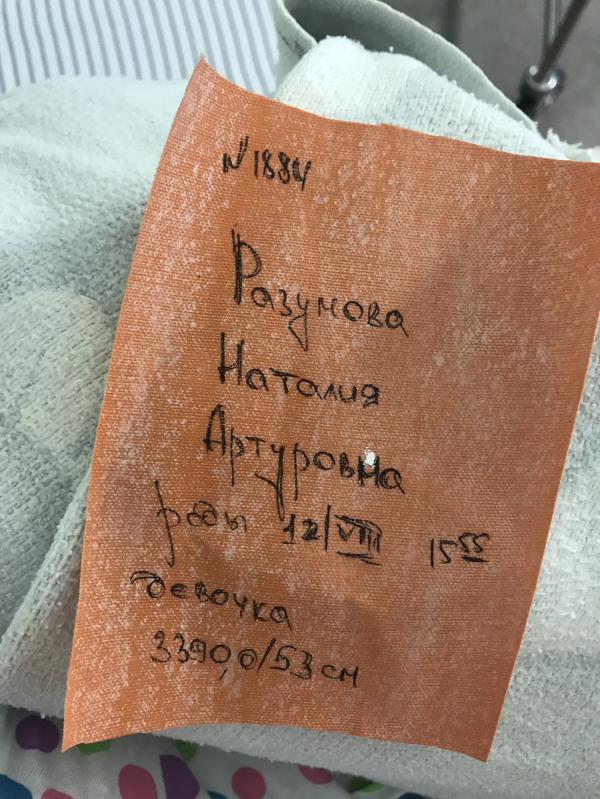 N 1884
Разумова
Наталия
Артуровна
роды 12/VIII 15 55
девочка
3390,0/53 см